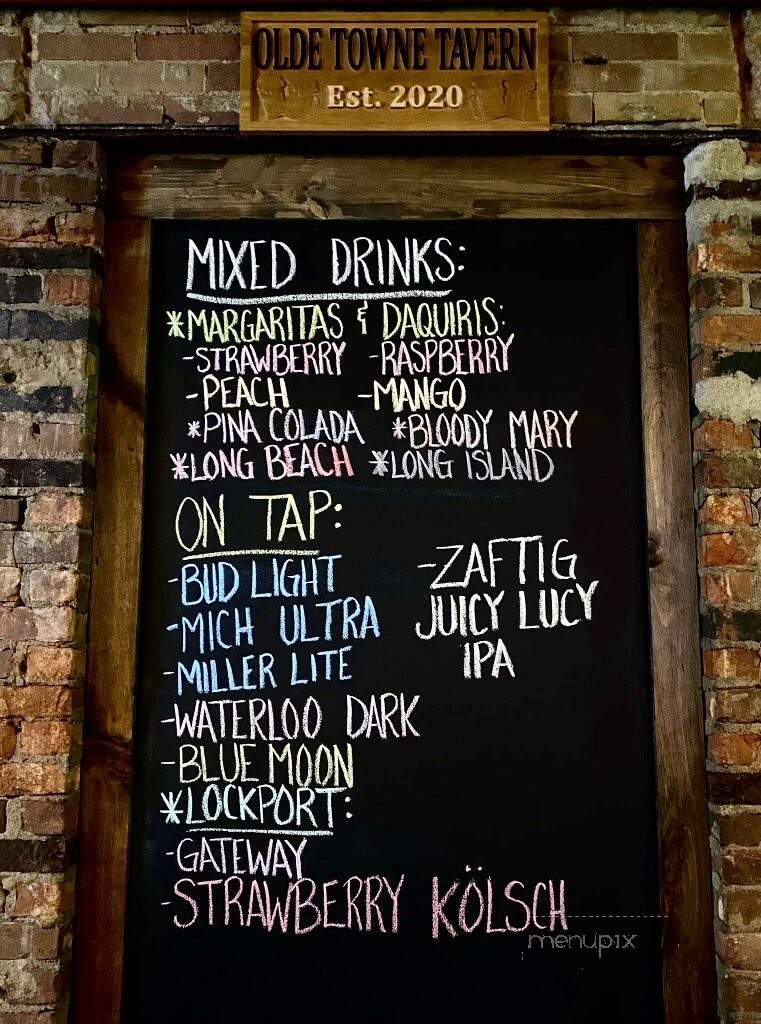 OLDE TOWNE TAVERN
Est. 2020
MIXED DRINKS:
*MARGARITAS & DAQUIRIS:
-STRAWBERRY -RASPBERRY
-PEACH -MANGO
*PINA COLADA *BLOODY MARY
*LONG BEACH *LONG ISLAND
ON TAP:
-BUD LIGHT
-MICH ULTRA
-MILLER LITE
-WATERLOO DARK
-BLUE MOON
*LOCKPORT:
-GATEWAY
-STRAWBERRY KÖLSCH
-ZAFTIG
JUICY LUCY
IPA
menupix